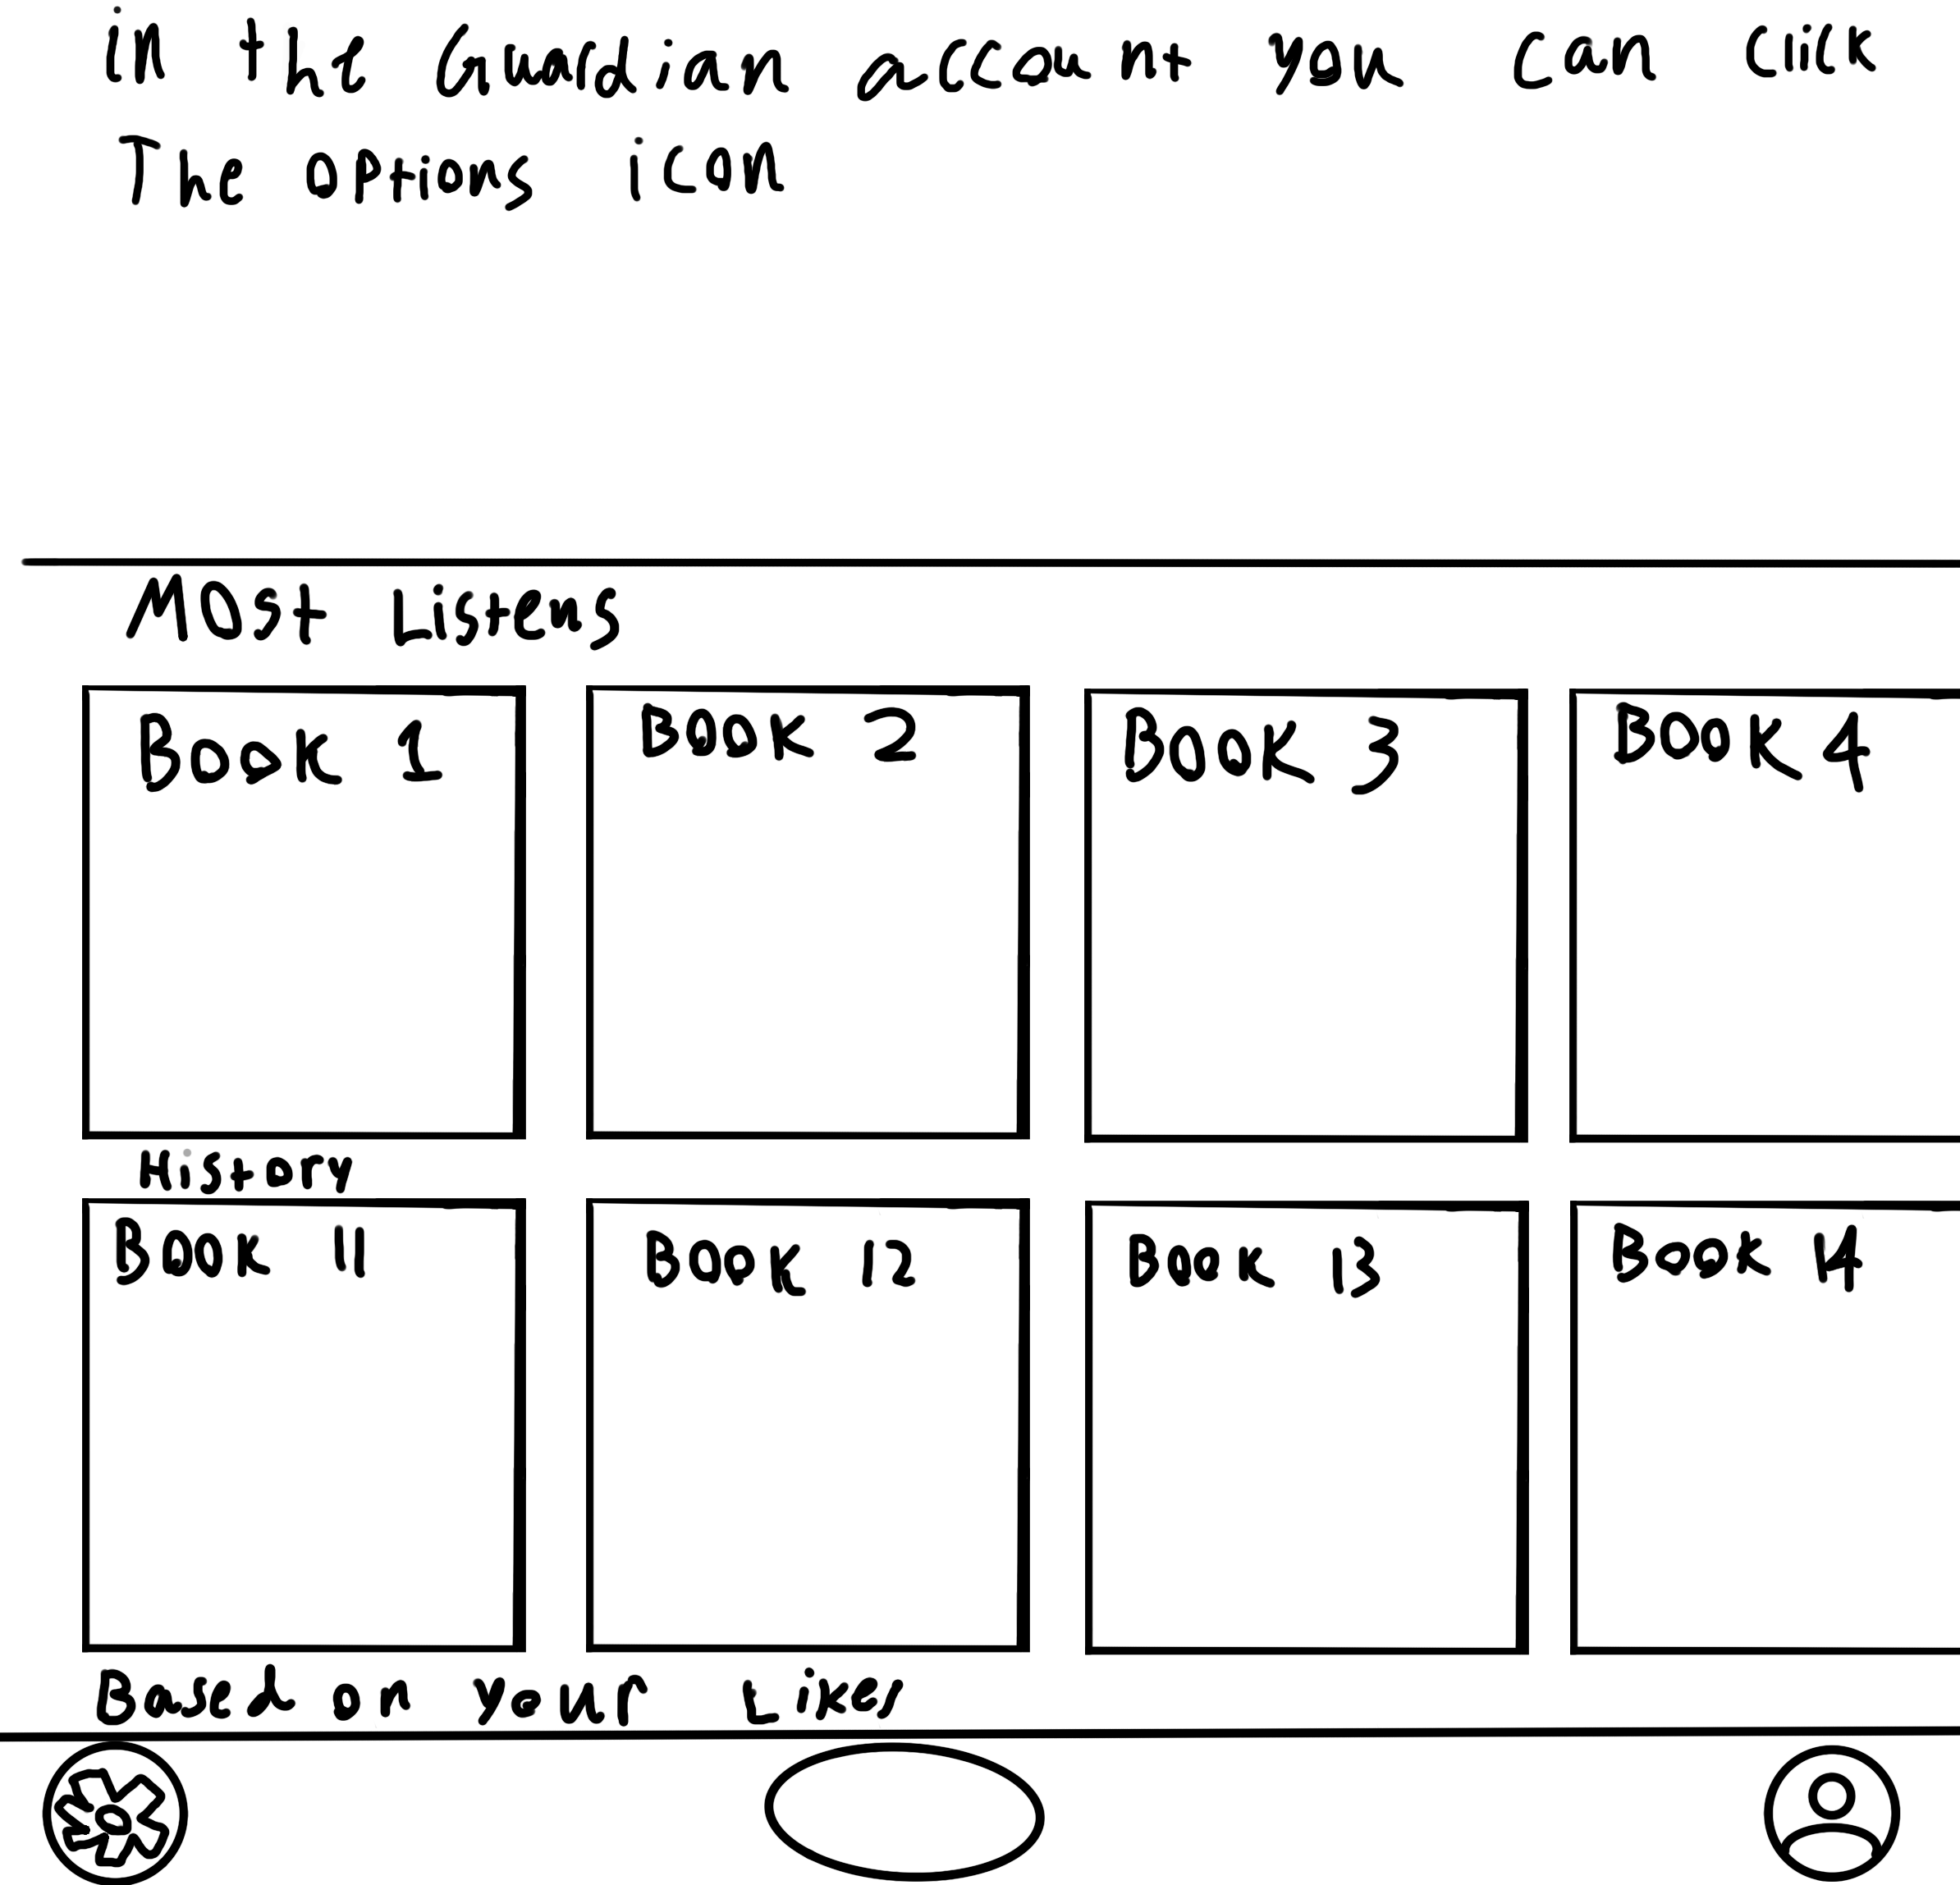 in the Guardian account you can clik
The options icon
Most Listens
Book 1 Book 2 Book 3 Book 4
History
Book 11 Book 12 Book 13 Book 14
Based on your Likes